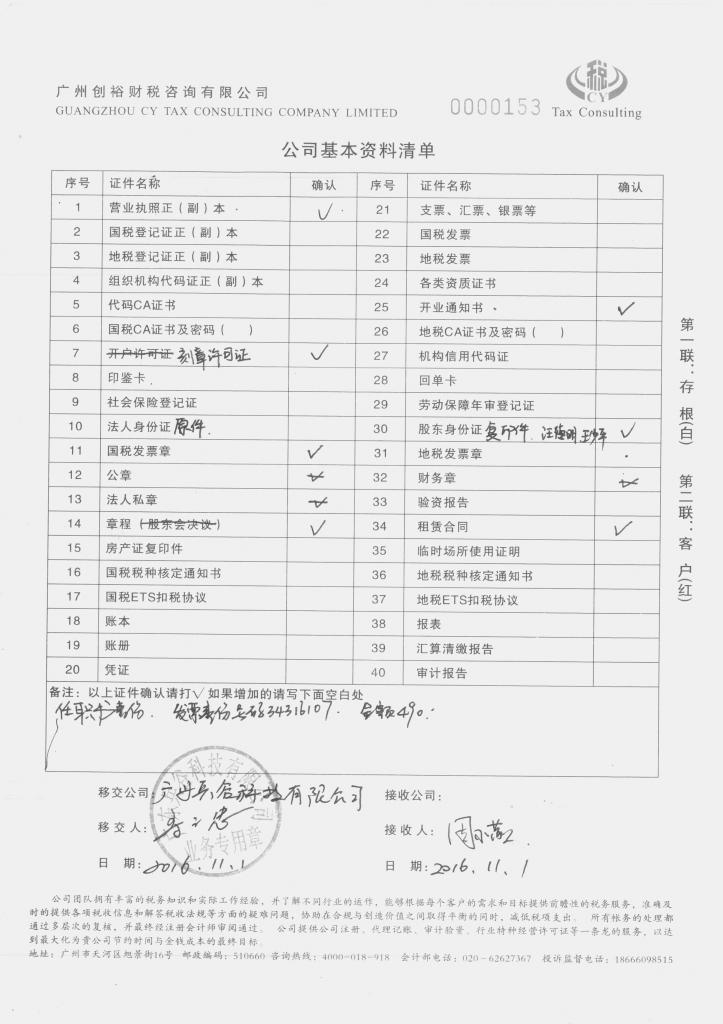 广州创裕财税咨询有限公司
GUANGZHOU CY TAX CONSULTING COMPANY LIMITED
0000153
税
CY
Tax Consulting
公司基本资料清单
序号 证件名称 确认 序号 证件名称 确认
1 营业执照正（副）本 ✓ 21 支票、汇票、银票等
2 国税登记证正（副）本 22 国税发票
3 地税登记证正（副）本 23 地税发票
4 组织机构代码证正（副）本 24 各类资质证书
5 代码CA证书 25 开业通知书 ✓
6 国税CA证书及密码（ ） 26 地税CA证书及密码（ ）
7 开户许可证 刻章许可证 ✓ 27 机构信用代码证
8 印鉴卡 28 回单卡
9 社会保险登记证 29 劳动保障年审登记证
10 法人身份证 原件 30 股东身份证 复印件 ✓
11 国税发票章 ✓ 31 地税发票章
12 公章 ✓ 32 财务章 ✓
13 法人私章 ✓ 33 验资报告
14 章程（股东会决议） ✓ 34 租赁合同 ✓
15 房产证复印件 35 临时场所使用证明
16 国税税种核定通知书 36 地税税种核定通知书
17 国税ETS扣税协议 37 地税ETS扣税协议
18 账本 38 报表
19 账册 39 汇算清缴报告
20 凭证 40 审计报告
备注：以上证件确认请打√如果增加的请写下面空白处
任职书壹份． 发票壹份号码34316107． 金额490．
第一联：存根(白) 第二联：客户(红)
移交公司： 有限公司
接收公司：
业务专用章
移交人：
接收人：
日 期：2016.11.1
日 期：2016.11.1
公司团队拥有丰富的税务知识和实际工作经验，并了解不同行业的运作，能够根据每个客户的需求和目标提供前瞻性的税务服务，准确及
时的提供各项税收信息和解答税收法规等方面的疑难问题，协助在合规与创造价值之间取得平衡的同时，减低税项支出。 所有帐务的处理都
通过多层次的复核，并最终经注册会计师审阅通过。 公司提供公司注册、代理记账、审计验资、行业特种经营许可证等一条龙的服务，以达
到最大化为贵公司节约时间与金钱成本的最终目标。
地址：广州市天河区旭景街16号 邮政编码：510660 咨询热线：4000-018-918 会计部电话：020-62627367 投诉监督电话：18666098515